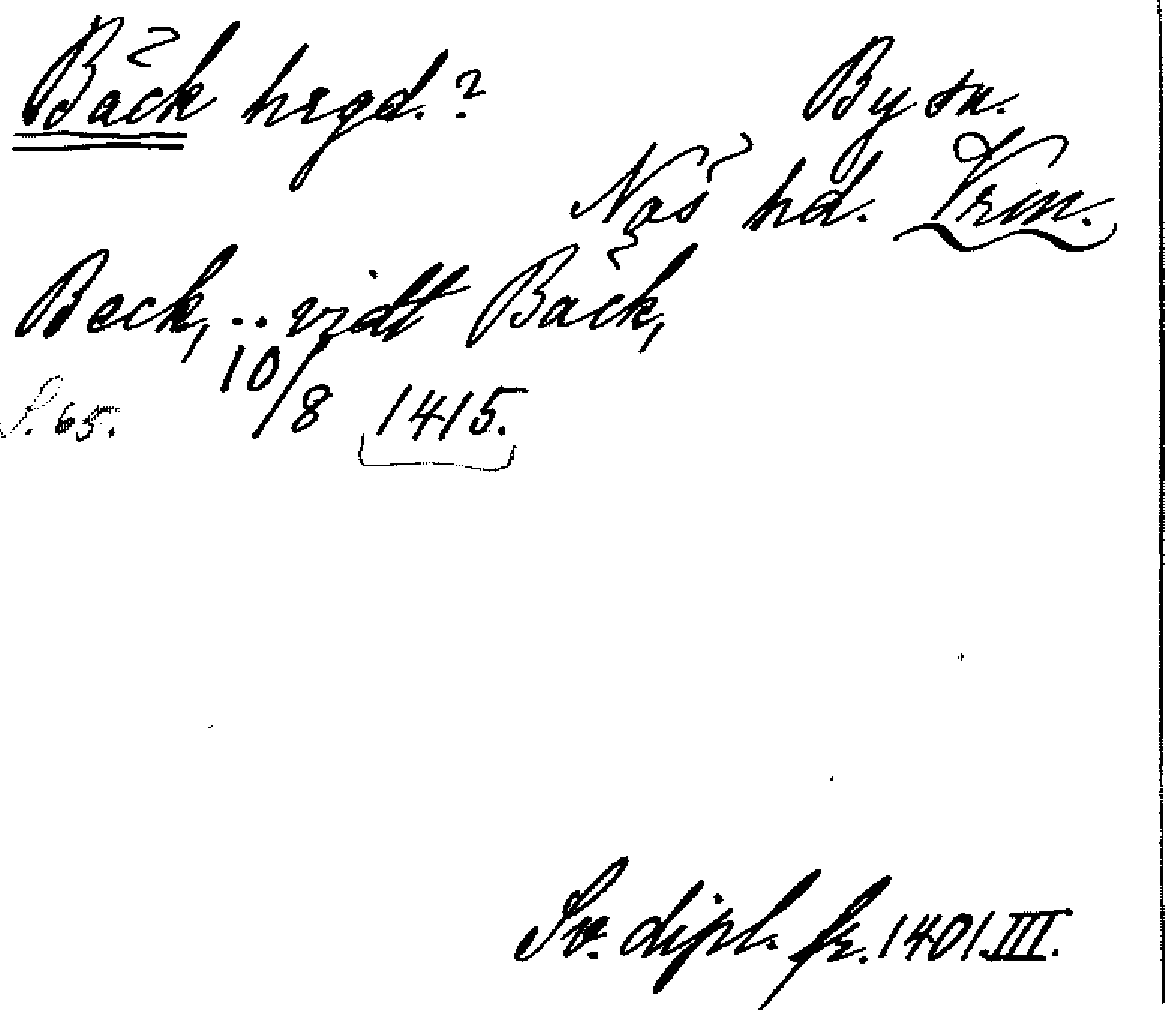 Bäck hrgd.? By sn.
Näs hd. Vrm.
Beck, .. vidt Bäck,
10/8 1415.
S. 65.
Sv. dipl. fr. 1401. III.